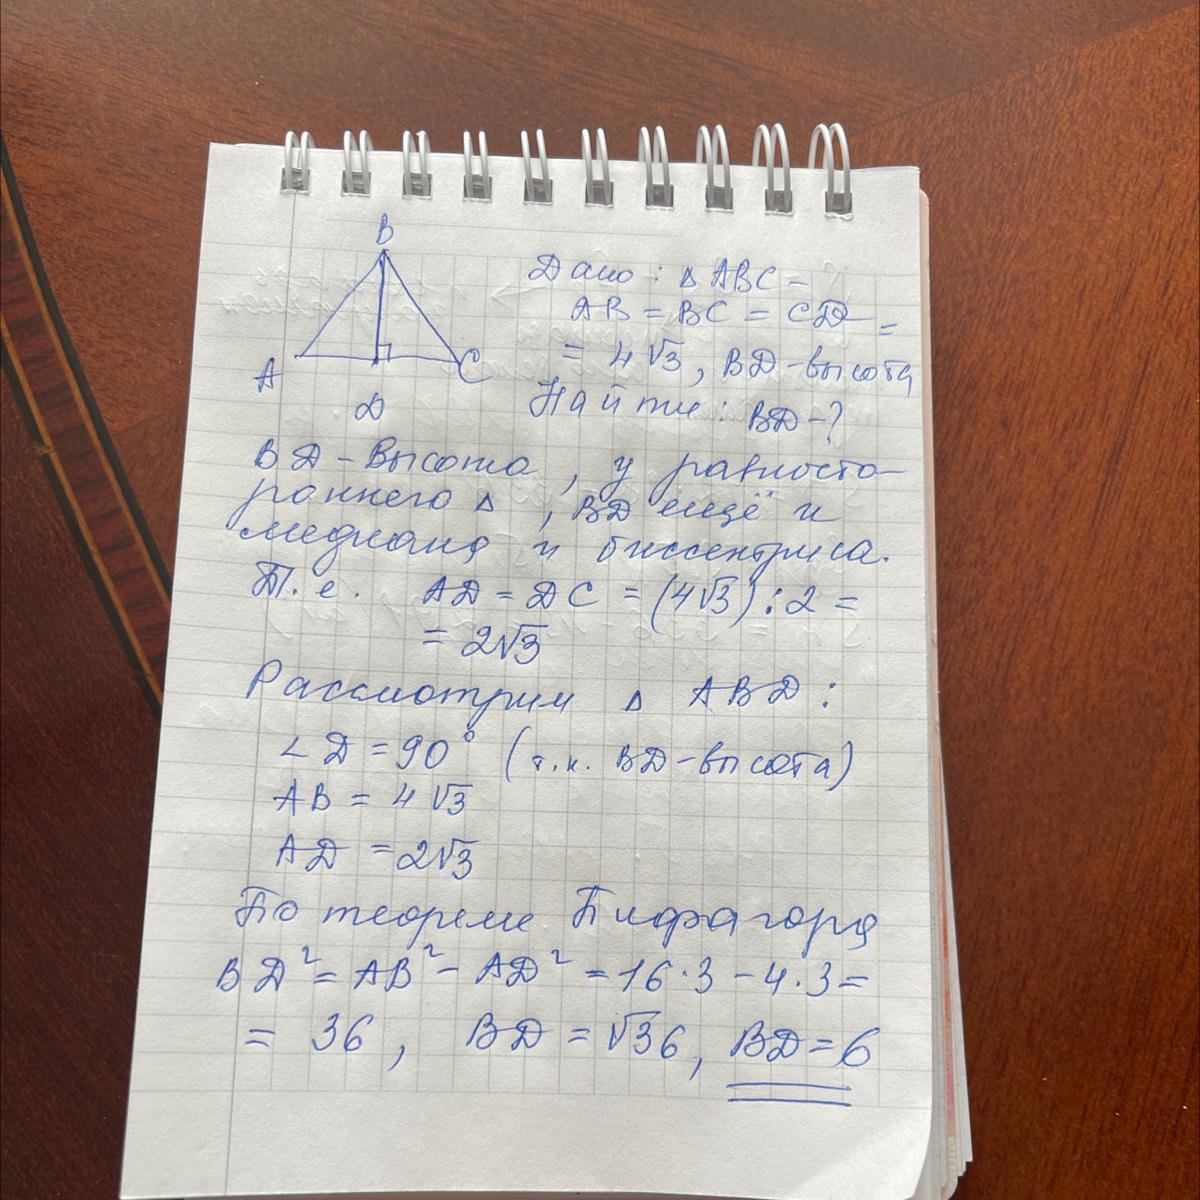 B
A
C
D
Дано: △ ABC –
AB = BC = CD =
= 4√3, BD - высота
Найти: BD - ?
BD - высота, у равносто-
роннего △, BD ещё и
медиана и биссектриса.
Т. е. AD = DC = (4√3) : 2 =
= 2√3
Рассмотрим △ ABD :
∠D = 90° (т.к. BD - высота)
AB = 4√3
AD = 2√3
По теореме Пифагора
BD² = AB² - AD² = 16·3 - 4·3 =
= 36, BD = √36, BD = 6